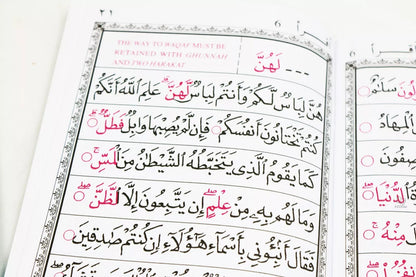 ٢١
أ 6
THE WAY TO WAQAF MUST BE
RETAINED WITH GHUNNAH
AND TWO HARAKAT
--- لَهُنَّ
هُنَّ لِبَاسٌ لَّكُمْ وَأَنتُمْ لِبَاسٌ لَّهُنَّ عَلِمَ اللَّهُ أَنَّكُمْ
كُنتُمْ تَخْتَانُونَ أَنفُسَكُمْ فَإِن لَّمْ يُصِبْهَا وَابِلٌ فَطَلٌّ
كَمَا يَقُومُ الَّذِي يَتَخَبَّطُهُ الشَّيْطَانُ مِنَ الْمَسِّ
وَمَا لَهُم بِهِ مِنْ عِلْمٍ إِن يَتَّبِعُونَ إِلَّا الظَّنَّ
فَقَالَ أَنبِئُونِي بِأَسْمَاءِ هَٰؤُلَاءِ إِن كُنتُمْ صَادِقِينَ
سَلَامٌ
الْمِهَادُ
الدُّنْيَا
مِنْهُ